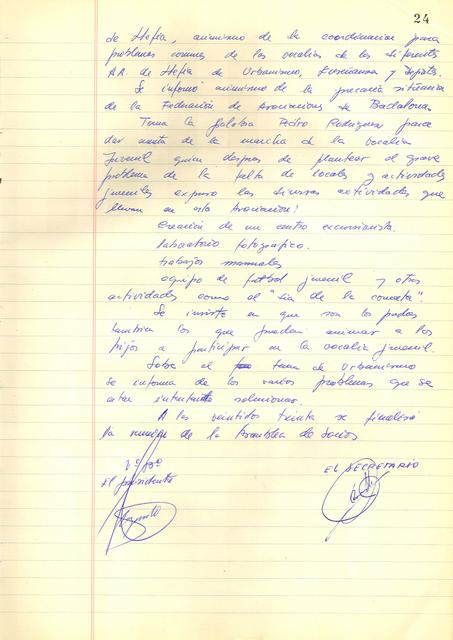 24
de Llefia, asimismo de la coordinacion para
problemas comunes de las vocalias de las diferentes
AA. de Llefia de Urbanismo, Enseñanza y Deportes.
Se informó asimismo de la precaria situacion
de la Federación de Asociaciones de Badalona.
Toma la palabra Pedro Rodriguez para
dar cuenta de la marcha de la vocalia
Juvenil quien despues de plantear el grave
problema de la falta de locales y actividades
juveniles expuso las diversas actividades que
llevan en esta Asociacion:
Creación de un centro excursionista.
Laboratorio fotografico.
trabajos manuales
equipo de futbol juvenil y otras
actividades como el "dia de la cometa".
Se insiste en que son los padres
tambien los que puedan animar a los
hijos a participar en la vocalia juvenil.
Sobre el tema de Urbanismo
se informa de los varios problemas que se
estan intentando solucionar.
A las veintidos treinta se finalizó
la reunion de la Asamblea de Socios
Vº Bº
El presidente
EL SECRETARIO